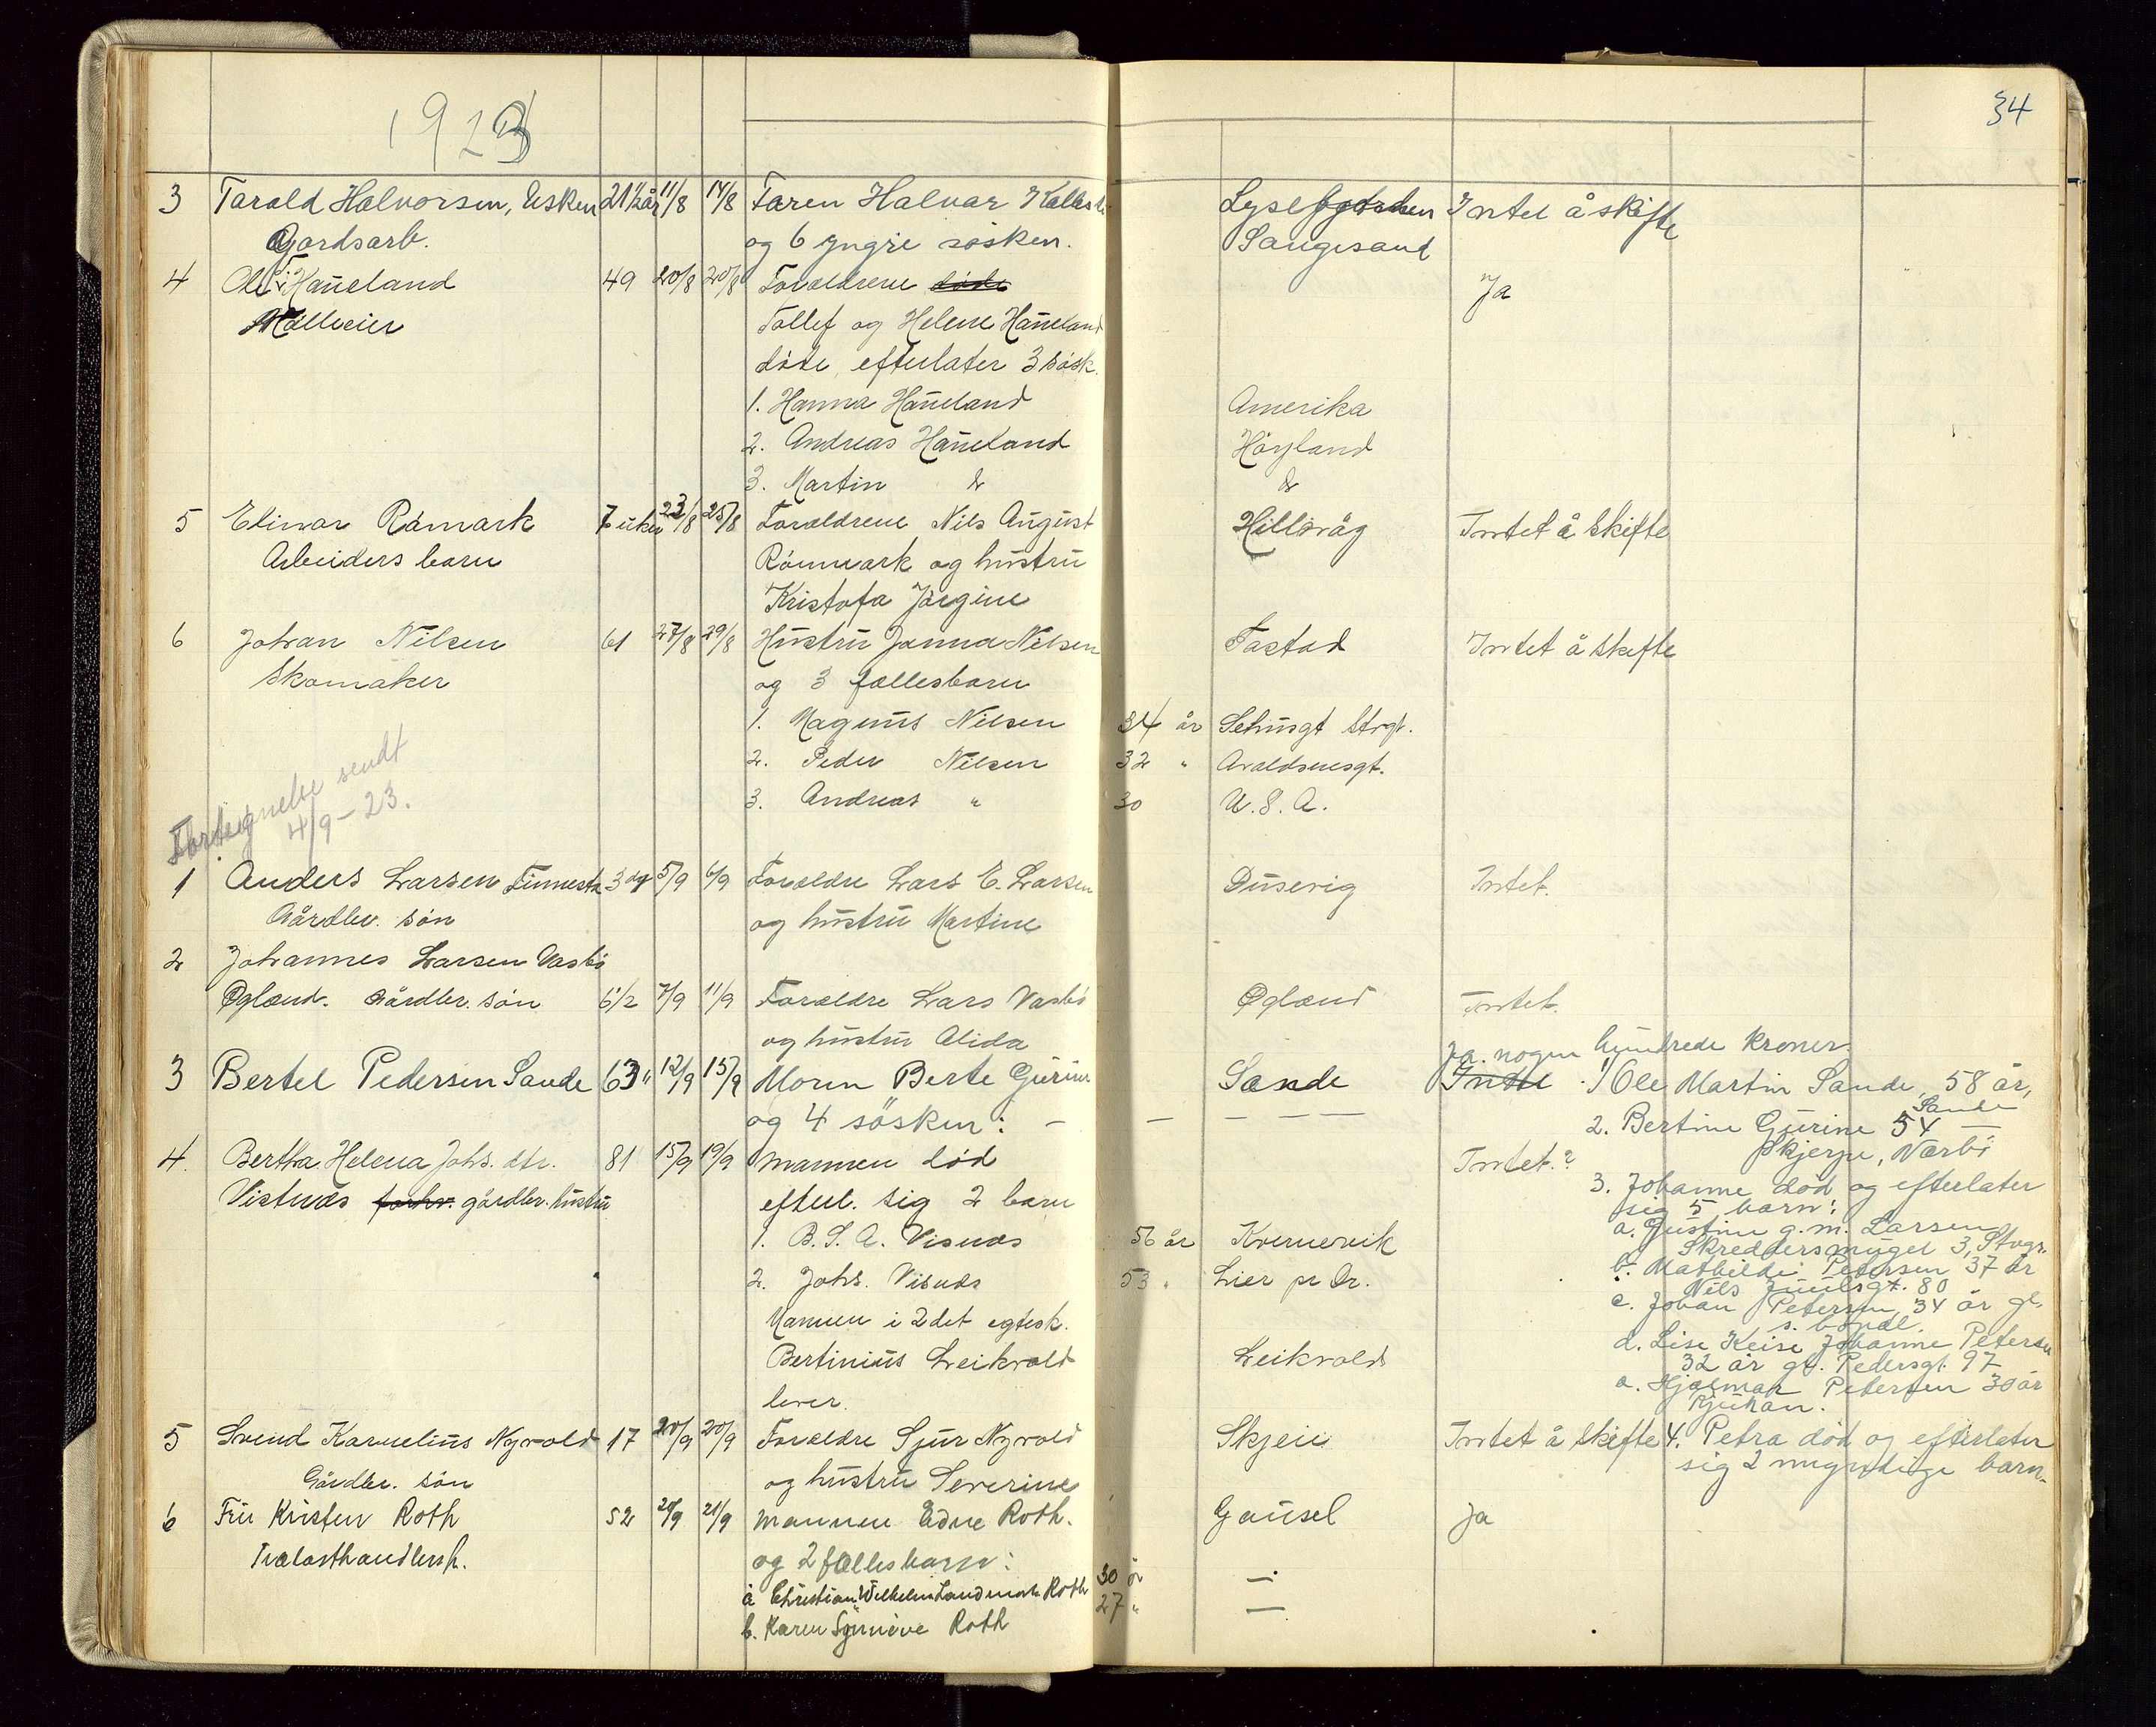 34
1923
3 Tarald Halvorsen, Eskeu 21½ år 11/8 14/8 Faren Halvar Lyse Intet å skifte
Gardsarb. og 6 yngre søsken. Sangesand
4 Ole T. Haueland 49 20/8 20/8 Foreldrene døde Ja
Mølleeier Tollef og Helene Haueland
døde, efterlater 3 søsk.
1. Hanna Haueland Amerika
2. Andreas Haueland Høyland
3. Martin do do
5 Edinar Råmark 7 uker 23/8 25/8 Foreldrene Nils August Hillevåg Intet å skifte
Arbeiders barn Rönmark og hustru
Kristofa Jørgine
6 Johan Nilsen 61 27/8 29/8 Hustru Janna Nilsen Tastad Intet å skifte
Skomaker og 3 fællesbarn
1. Magnus Nilsen 34 år Sehusgt Stvgr.
2. Peder Nilsen 32 " Avaldsnesgt.
3. Andreas " 30 U.S.A.
Fortegnelse sendt
4/9-23.
1 Anders Larsen Finnesta 3 dg 5/9 6/9 Foreldre Lars E. Larsen Dusevig Intet.
Gårdbr. søn og hustru Martine
2 Johannes Larsen Vasbø
Øgland. Gårdbr. søn 6½ 7/9 11/9 Foreldre Lars Vasbø Øgland Intet.
og hustru Alida
Ja. nogen hundrede kroner.
3 Bertel Pedersen Sande 63 " 12/9 15/9 Moren Berte Gurine Sande Intet 1) Ole Martin Sande, 58 år,
Sande
og 4 søsken: — — — — — 2. Bertine Gurine 54 —
Skjerpe, Nærbø
4. Bertha Helena Johs. dtr. 81 15/9 19/9 Mannen død Intet.?
Vistnæs forhv. gårdbr. hustru efterl. sig 2 barn 3. Johanne død og efterlater
sig 5 barn:
a. Gustine g.m. Larsen
1. B. S. A. Visnæs 56 år Kvernevik Skreddersmuget 3, Stvgr.
b. Mathilde Petersen 37 år
2. Johs. Visnæs 53 " Lier pr Dr. Nils Juulsgt. 80
c. Johan Petersen, 34 år gl.
Mannen i 2det egtesk. s. bopæl.
Bertinius Leikvold Leikvold d. Lise Keise Johanne Petersen
32 år gl. Pedersgt. 97
lever. a. Hjalmar Petersen 30 år
Rjukan.
5 Svend Karnelius Nyvold 17 20/9 20/9 Foreldre Sjur Nyvold Skjeie Intet å skifte 4. Petra død og efterlater
Gårdbr. søn og hustru Severine sig 2 myndige barn.
6 Fru Kristen Roth 52 20/9 21/9 Mannen Edne Roth. Gausel Ja
Trælasthandlersk. og 2 fællesbarn:
a Christian Wilhelm Landmark Roth 30 år —
b. Karen Synneve Roth 27 " —